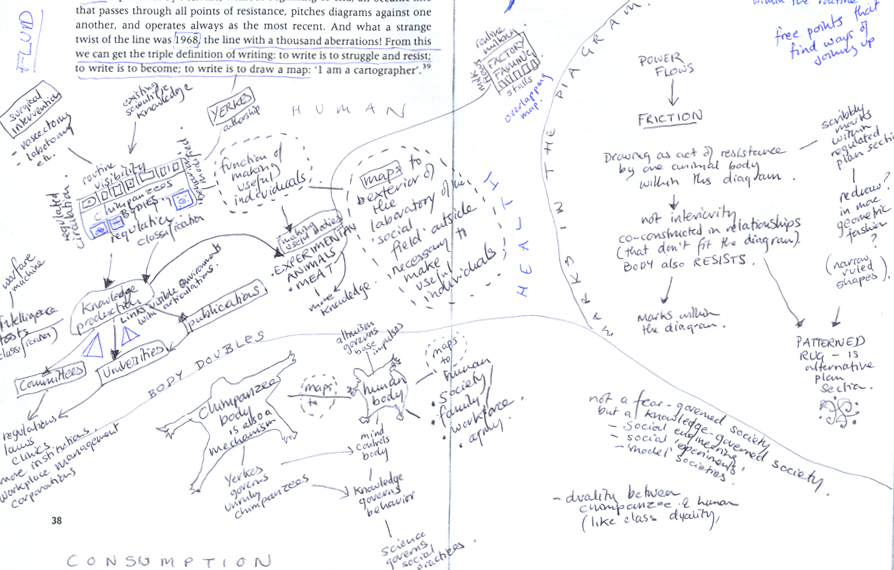 that passes through all points of resistance, pitches diagrams against one
another, and operates always as the most recent. And what a strange
twist of the line was 1968, the line with a thousand aberrations! From this
we can get the triple definition of writing: to write is to struggle and resist;
to write is to become; to write is to draw a map: 'I am a cartographer'.³⁹
FLUID
surgical
interventions
- vasectomy
- lobotomy
etc.
existing
scientific
knowledge
YERKES
authorship
HUMAN
routine
visibility
chimpanzees
BODIES
regulation
classification
regulated
circulation.
function of
making
(useful)
individuals
making
useful bodies
EXPERIMENTAL
ANIMALS
MEAT
more
knowledge.
maps to
exterior of
the
laboratory
social
field outside
necessary to
make
useful
individuals
HEALTH
routine
milk &
FACTORY
FARMING
stills
overlapping
map.
MARKS IN THE DIAGRAM.
within the routine
free points that
find ways of
joining up
POWER
FLOWS
FRICTION
Drawing as act of resistance
by one animal body
within this diagram.
not interiority
co-constructed in relationships
(that don't fit the diagram).
BODY also RESISTS.
marks within
the diagram.
scribbly
marks
within
regulated
plan section
redraw?
in more
geometric
fashion
?
(narrow
ruled
shapes)
PATTERNED
RUG - is
alternative
plan
section.
welfare
machine
Intelligence
tests
(classification)
Knowledge
production
Links
visible environments
with articulations.
publications
Committees
Universities
regulations
laws
clinics
more institutions.
workplace management
corporations
BODY DOUBLES
Chimpanzee
body
is also a
mechanism
maps
to
altruism
governs
base
impulses
human
body
maps
to
human
• society
• family
• workforce
• army.
Yerkes
governs
unruly
chimpanzees
mind
controls
body
Knowledge
governs
behavior
science
governs
social
practices.
not a fear-governed society
but a knowledge-governed society.
- social engineering
- social experiments
- 'model' societies
- duality between
chimpanzee & human
(like class duality,
38
CONSUMPTION